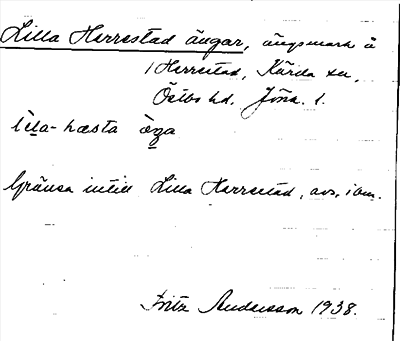 Lilla Herrestad ängar, ängsmark å
1 Herrestad, Kärda sn,
Östbo hd. Jöns. l.
lìla-hæsta
Gränsa intill Lilla Herrestad, avs. i om.
Fritz Andersson 1938.